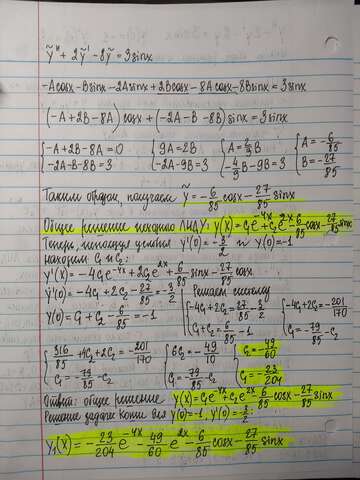 ỹ'' + 2ỹ' - 8ỹ = 3sinx
-Acosx - Bsinx - 2Asinx + 2Bcosx - 8Acosx - 8Bsinx = 3sinx
(-A + 2B - 8A) cosx + (-2A - B - 8B) sinx = 3sinx
{-A + 2B - 8A = 0 {9A = 2B {A = 2/9 B {A = -6/85
{-2A - B - 8B = 3 {-2A - 9B = 3 {-4/9 B - 9B = 3 {B = -27/85
Таким образом, получаем ỹ = -6/85 cosx - 27/85 sinx
Общее решение искомого ЛНДУ: y(x) = C₁e^-4x + C₂e^2x - 6/85 cosx - 27/85 sinx
Теперь, используя условия y'(0) = -3/2 и y(0) = -1
находим C₁ и C₂:
y'(x) = -4C₁e^-4x + 2C₂e^2x + 6/85 sinx - 27/85 cosx
y'(0) = -4C₁ + 2C₂ - 27/85 = -3/2 Решаем систему
y(0) = C₁ + C₂ - 6/85 = -1 {-4C₁ + 2C₂ = 27/85 - 3/2 {-4C₁ + 2C₂ = -201/170
{C₁ + C₂ = 6/85 - 1 {C₁ = -79/85 - C₂
{316/85 + 4C₂ + 2C₂ = -201/170 {6C₂ = -49/10 {C₂ = -49/60
{C₁ = -79/85 - C₂ {C₁ = -79/85 - C₂ {C₁ = -23/204
Ответ: общее решение y(x) = C₁e^-4x + C₂e^2x - 6/85 cosx - 27/85 sinx
Решение задачи Коши для y(0) = -1, y'(0) = -3/2
y₁(x) = -23/204 e^-4x - 49/60 e^2x - 6/85 cosx - 27/85 sinx